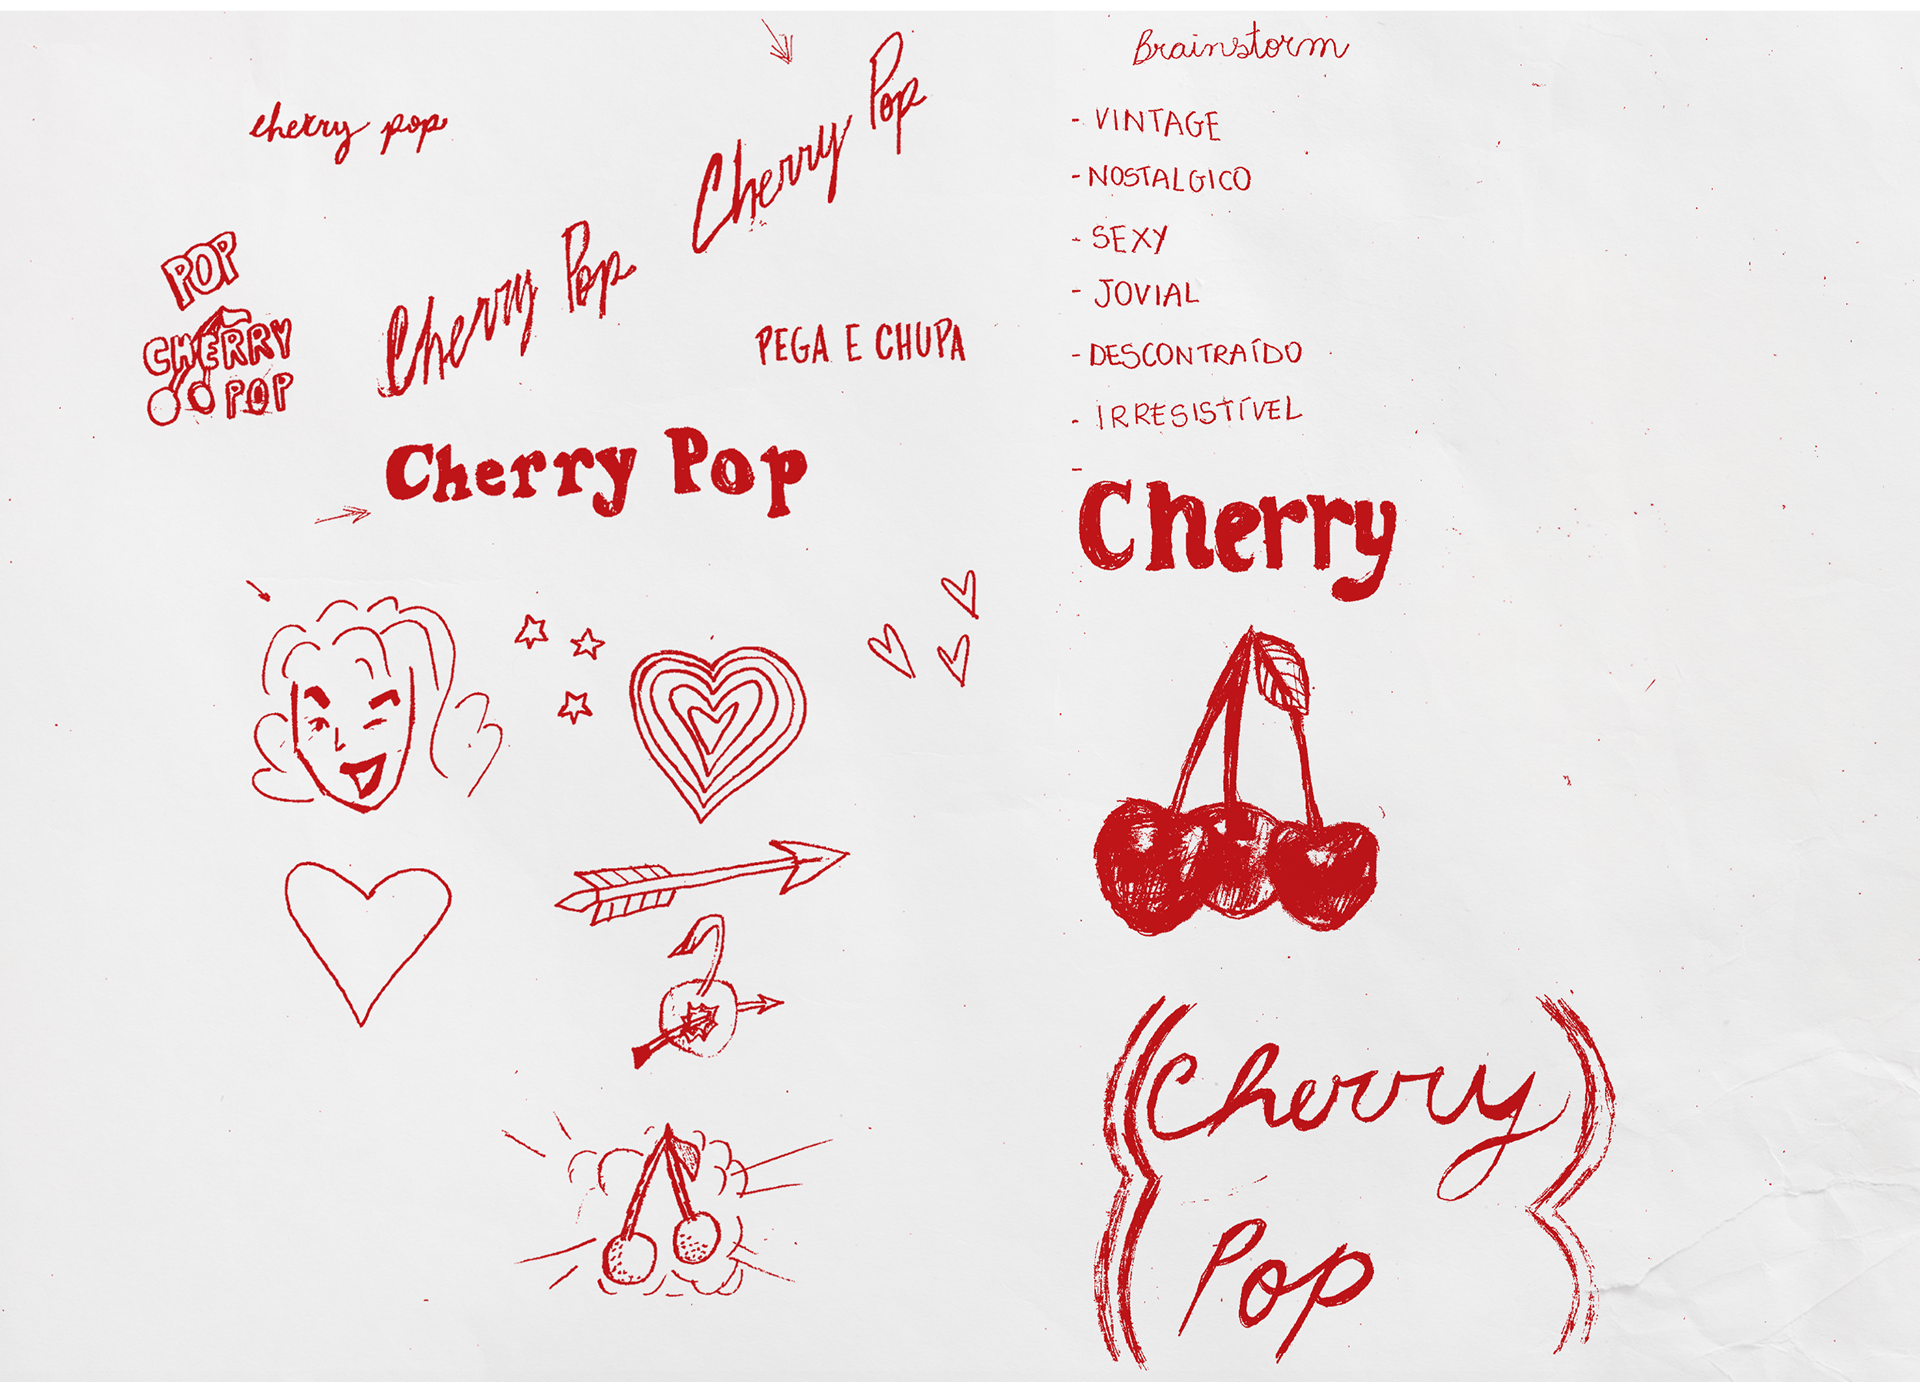 cherry pop
Cherry Pop
POP
CHERRY
POP
Cherry Pop
PEGA E CHUPA
Cherry Pop
Brainstorm
- VINTAGE
- NOSTALGICO
- SEXY
- JOVIAL
- DESCONTRAÍDO
- IRRESISTÍVEL
-
Cherry
Cherry
Pop